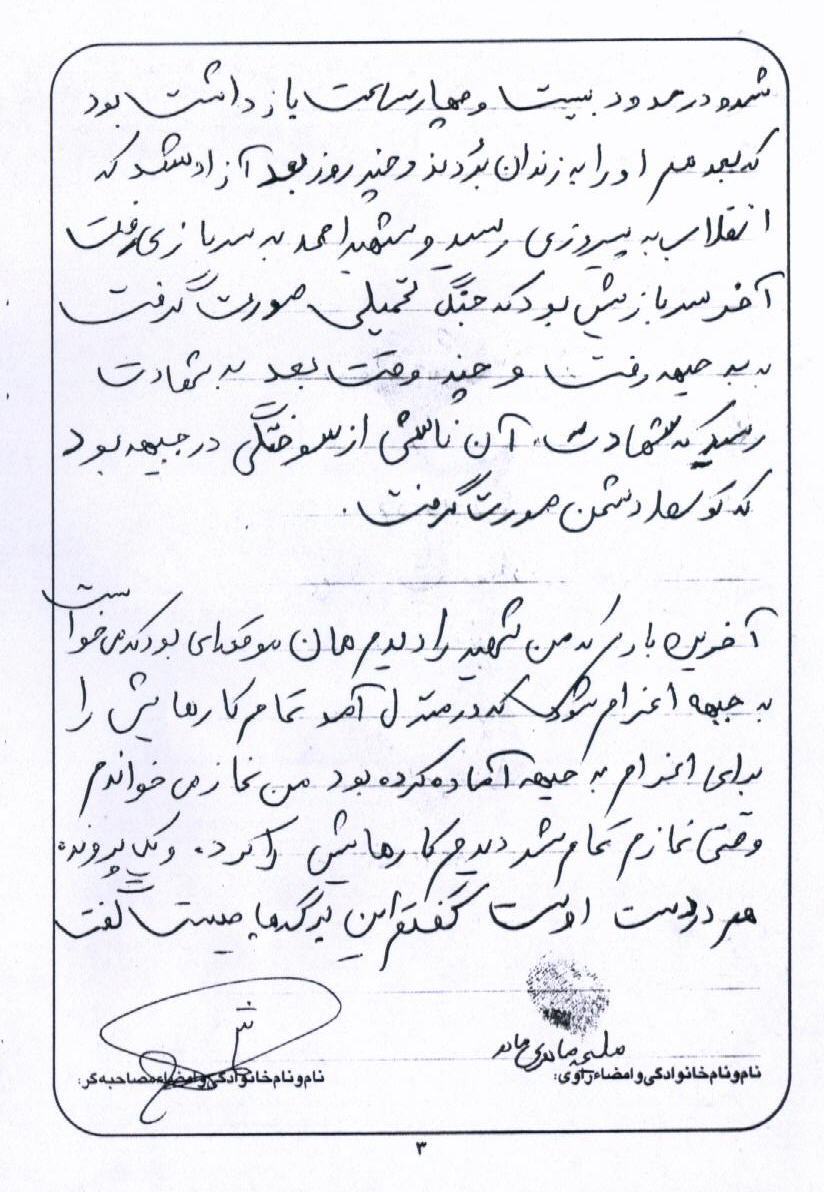 شده و در حدود بیست و چهار ساعت بازداشت بود
که بعد هم او را به زندان بردند و چند روز بعد آزاد شد که
انقلاب به پیروزی رسید و شهید احمد به سربازی رفت
آخر سربازیش بود که جنگ تحمیلی صورت گرفت
به جبهه رفت و چند وقت بعد به شهادت
رسید که شهادت آن ناشی از سوختگی در جبهه بود
که توسط دشمن صورت گرفت.
آخرین باری که من شهید را دیدم همان موقعه‌ای بود که می‌خواست
به جبهه اعزام شود که در منزل آمد تمام کارهایش را
برای اعزام به جبهه آماده کرده بود من نماز می‌خواندم
وقتی نمازم تمام شد دیدم کارهایش را کرده و یک پرونده
هم در دست اوست گفتم این برگه‌ها چیست گفت
نام و نام خانوادگی و امضاء راوی:
نام و نام خانوادگی و امضاء مصاحبه‌گر:
۳